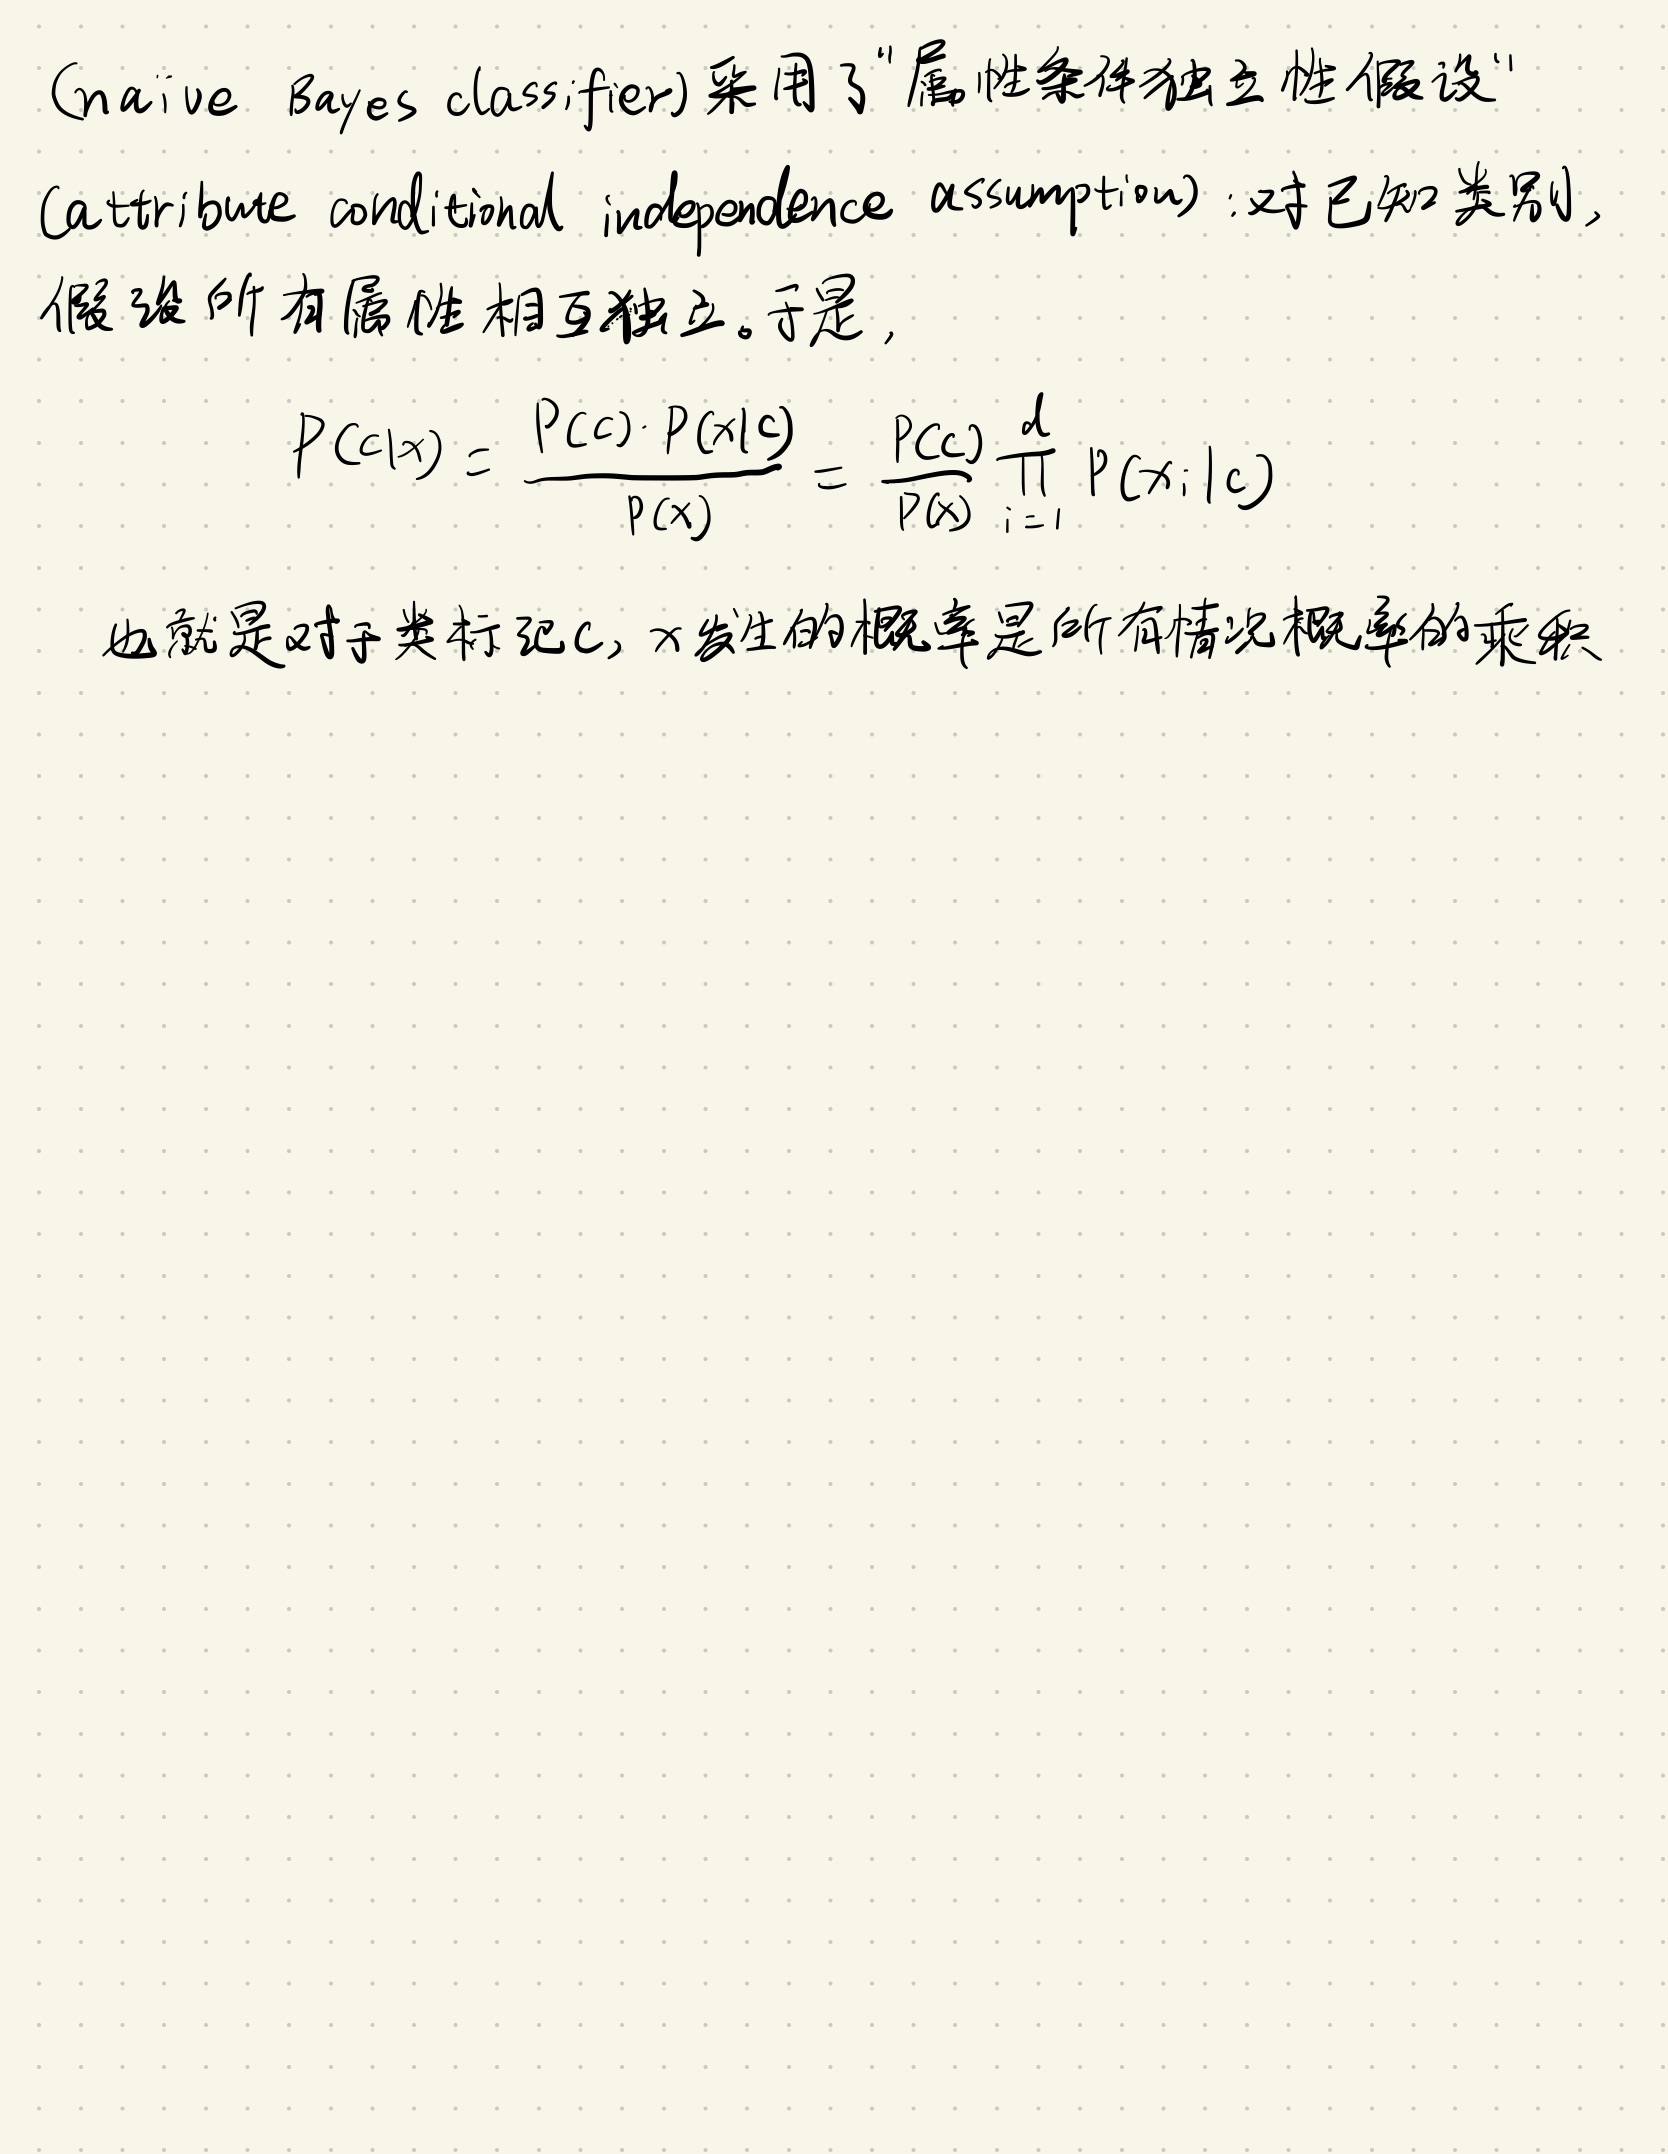 (naïve Bayes classifier)采用了“属性条件独立性假设”
(attribute conditional independence assumption):对已知类别,
假设所有属性相互独立。于是,
P(c|x) = \frac{P(c)·P(x|c)}{P(x)} = \frac{P(c)}{P(x)} \prod_{i=1}^{d} P(x_i|c)
也就是对于类标记c, x发生的概率是所有情况概率的乘积